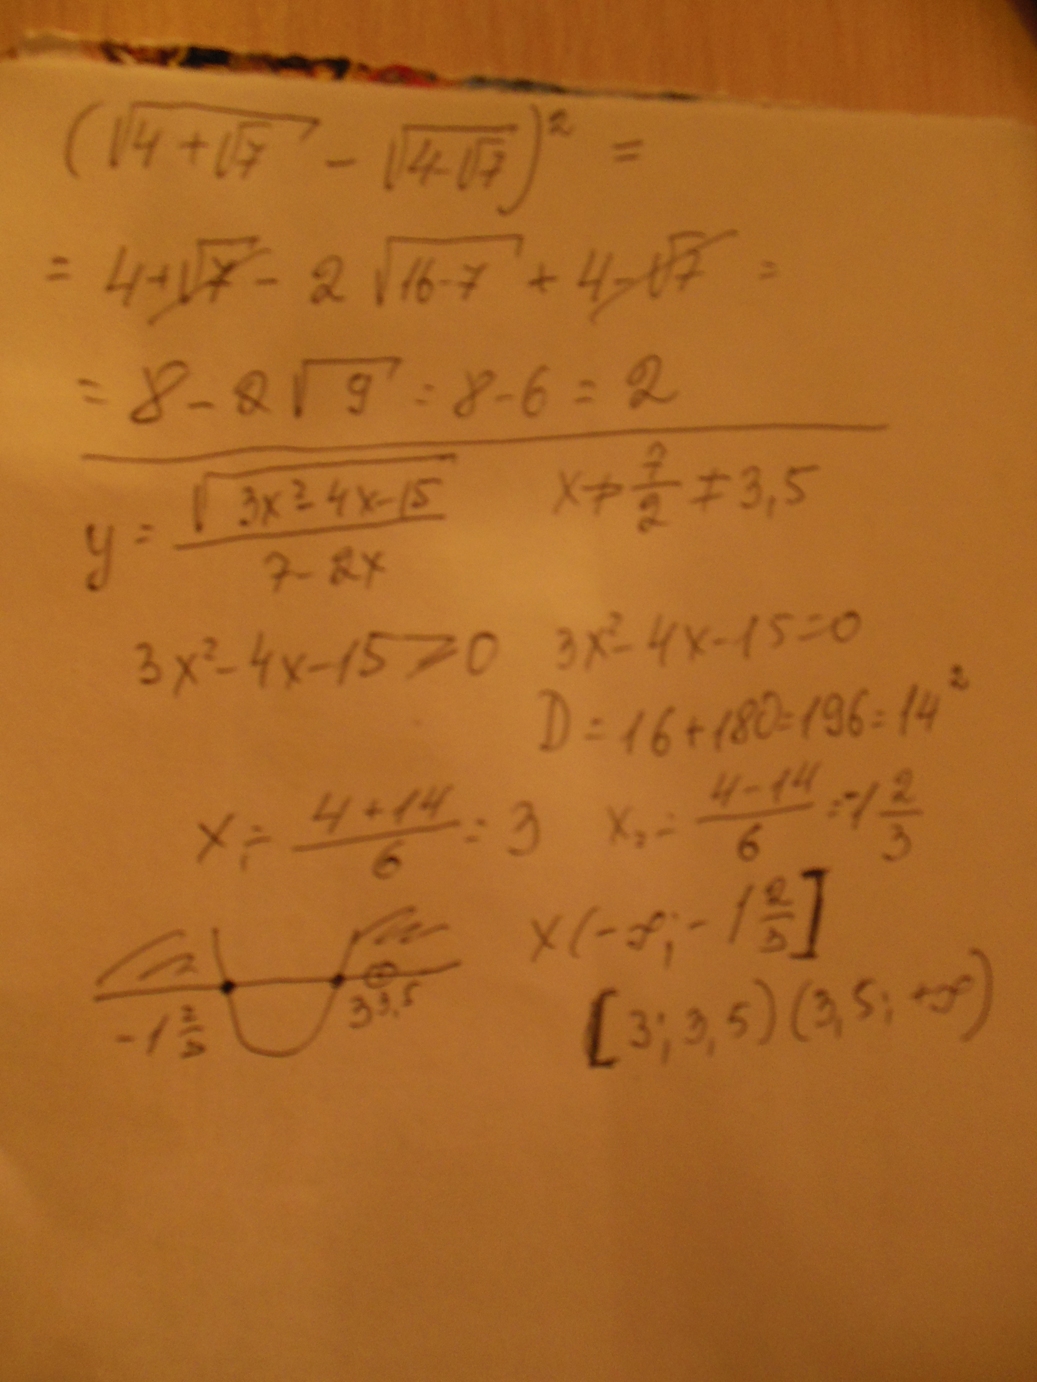 (√(4+√7) - √(4-√7))² =
= 4+√7 - 2√(16-7) + 4-√7 =
= 8 - 2√9 = 8-6 = 2
y = √(3x²-4x-15) / (7-2x)   x ≠ 7/2 ≠ 3,5
3x²-4x-15 ⩾ 0   3x²-4x-15=0
D = 16+180=196=14²
x₁ = (4+14)/6 = 3   x₂ = (4-14)/6 = -1 2/3
x (-∞; -1 2/3]
-1 2/3   3 3,5
[3; 3,5) (3,5; +∞)